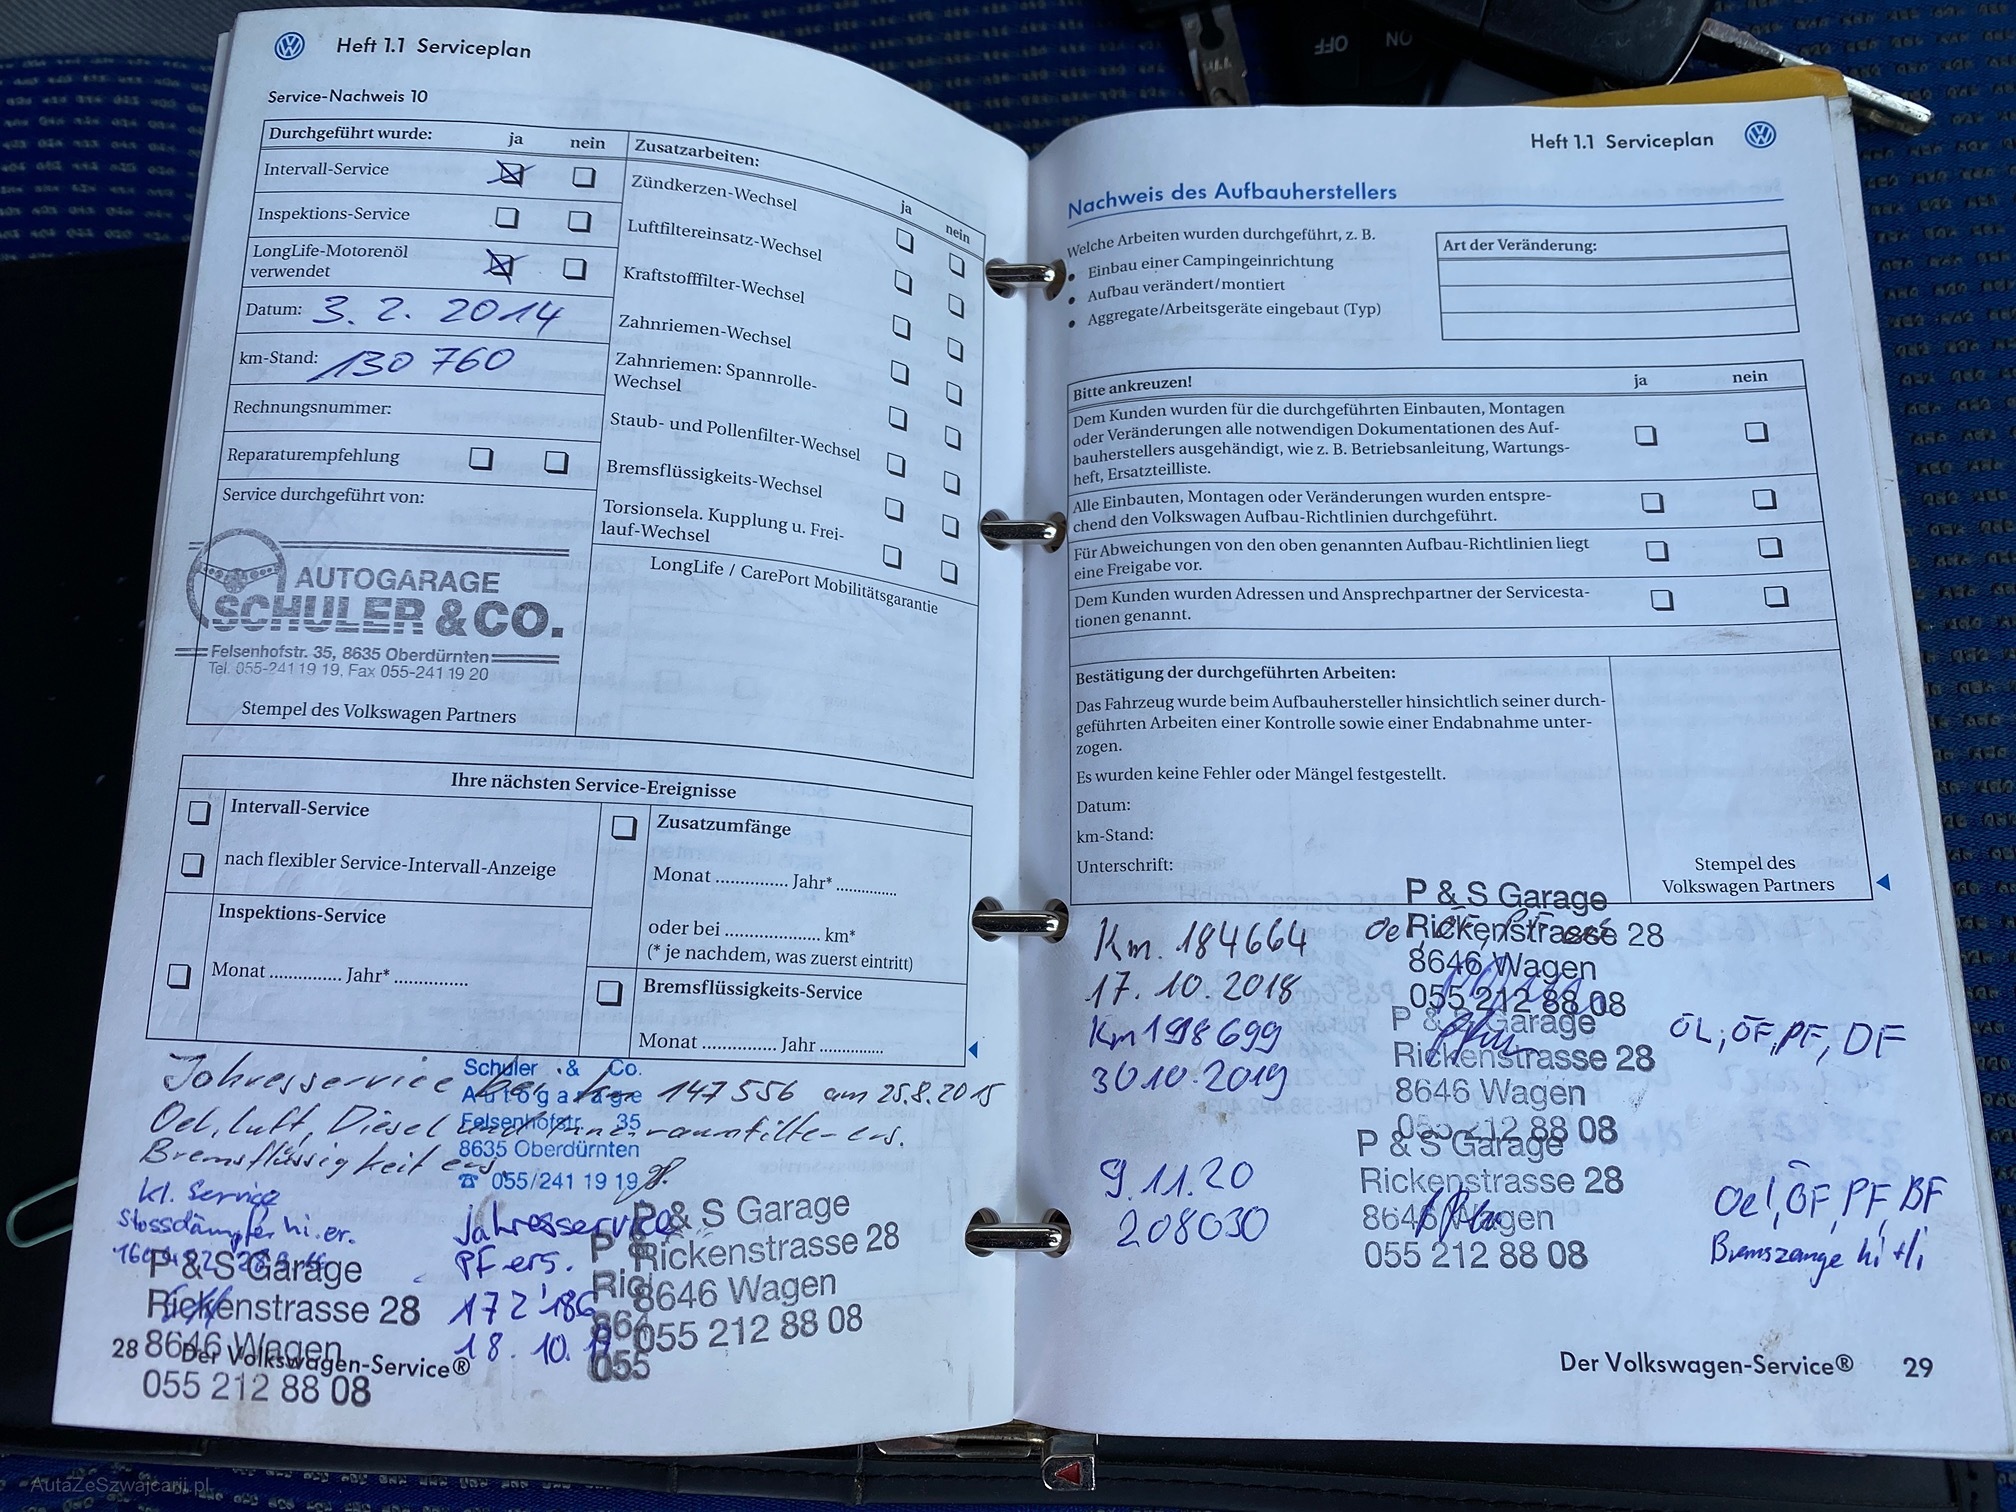 Heft 1.1 Serviceplan
Service-Nachweis 10
Durchgeführt wurde: ja nein
Intervall-Service
Inspektions-Service
LongLife-Motorenöl
verwendet
Datum: 3. 2. 2014
km-Stand: 130 760
Rechnungsnummer:
Reparaturempfehlung
Service durchgeführt von:
AUTOGARAGE
SCHULER & CO.
Felsenhofstr. 35, 8635 Oberdürnten
Tel. 055-241 19 19, Fax 055-241 19 20
Stempel des Volkswagen Partners
Zusatzarbeiten: ja nein
Zündkerzen-Wechsel
Luftfiltereinsatz-Wechsel
Kraftstofffilter-Wechsel
Zahnriemen-Wechsel
Zahnriemen: Spannrolle-
Wechsel
Staub- und Pollenfilter-Wechsel
Bremsflüssigkeits-Wechsel
Torsionsela. Kupplung u. Frei-
lauf-Wechsel
LongLife / CarePort Mobilitätsgarantie
Ihre nächsten Service-Ereignisse
Intervall-Service
nach flexibler Service-Intervall-Anzeige
Inspektions-Service
Monat ............... Jahr* ...............
Zusatzumfänge
Monat ............... Jahr* .............
oder bei .................... km*
(* je nachdem, was zuerst eintritt)
Bremsflüssigkeits-Service
Monat ............... Jahr .............
Jahresservice bei km 147 556 am 25.8.2015
Oel, Luft, Diesel und Innenraumfilter ers.
Bremsflüssigkeit ers.
Schuler & Co.
Autogarage
Felsenhofstr. 35
8635 Oberdürnten
☎ 055/241 19 19
kl. Service
Stossdämpfer hi. er.
P & S Garage
Rickenstrasse 28
8646 Wagen
055 212 88 08
Jahresservice
PF ers.
172'186
18. 10. 17
P & S Garage
Rickenstrasse 28
8646 Wagen
055 212 88 08
28 Der Volkswagen-Service®
Heft 1.1 Serviceplan
Nachweis des Aufbauherstellers
Welche Arbeiten wurden durchgeführt, z. B.
• Einbau einer Campingeinrichtung
• Aufbau verändert/montiert
• Aggregate/Arbeitsgeräte eingebaut (Typ)
Art der Veränderung:
Bitte ankreuzen! ja nein
Dem Kunden wurden für die durchgeführten Einbauten, Montagen
oder Veränderungen alle notwendigen Dokumentationen des Auf-
bauherstellers ausgehändigt, wie z. B. Betriebsanleitung, Wartungs-
heft, Ersatzteilliste.
Alle Einbauten, Montagen oder Veränderungen wurden entspre-
chend den Volkswagen Aufbau-Richtlinien durchgeführt.
Für Abweichungen von den oben genannten Aufbau-Richtlinien liegt
eine Freigabe vor.
Dem Kunden wurden Adressen und Ansprechpartner der Servicesta-
tionen genannt.
Bestätigung der durchgeführten Arbeiten:
Das Fahrzeug wurde beim Aufbauhersteller hinsichtlich seiner durch-
geführten Arbeiten einer Kontrolle sowie einer Endabnahme unter-
zogen.
Es wurden keine Fehler oder Mängel festgestellt.
Datum:
km-Stand:
Unterschrift:
Stempel des
Volkswagen Partners
Km. 184664
17. 10. 2018
P & S Garage
Rickenstrasse 28
8646 Wagen
055 212 88 08
Km 198699
30 10. 2019
P & S Garage
Rickenstrasse 28
8646 Wagen
055 212 88 08
ÖL, ÖF, PF, DF
9. 11. 20
208030
P & S Garage
Rickenstrasse 28
8646 Wagen
055 212 88 08
Oel, ÖF, PF, BF
Bremszange hi + li
Der Volkswagen-Service® 29
AutaZeSzwajcarii.pl